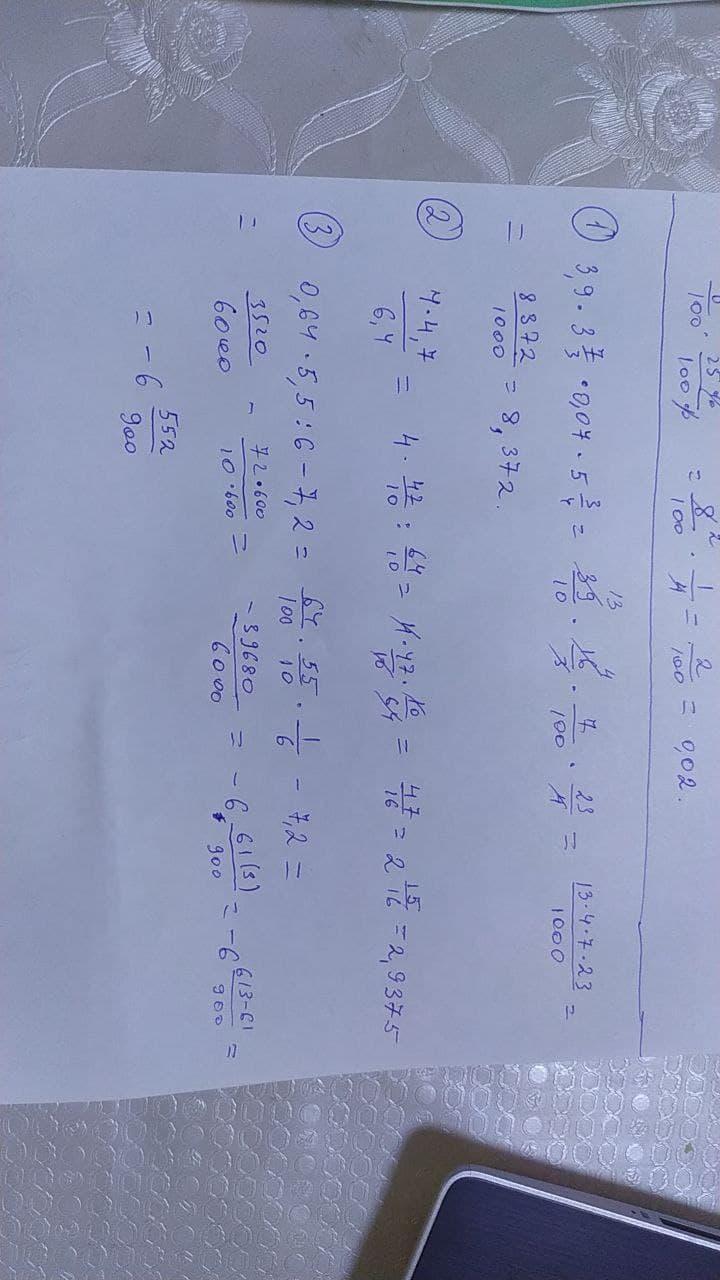 /100 · 25%/100% = 8²/100 · 1/4 = 2/100 = 0,02.
① 3,9 · 3 7/3 · 0,07 · 5 3/4 = 39¹³/10 · 16⁴/3 · 7/100 · 23/4 = 13·4·7·23/1000 =
= 8372/1000 = 8,372.
② 4·4,7/6,4 = 4 · 47/10 : 64/10 = 4 · 47/10 · 10/64 = 47/16 = 2 15/16 = 2,9375
③ 0,64 · 5,5 : 6 - 7,2 = 64/100 · 55/10 · 1/6 - 7,2 =
= 3520/6000 - 72·600/10·600 = -39680/6000 = -6, 61(3)/900 = -6 613-61/900 =
= -6 552/900